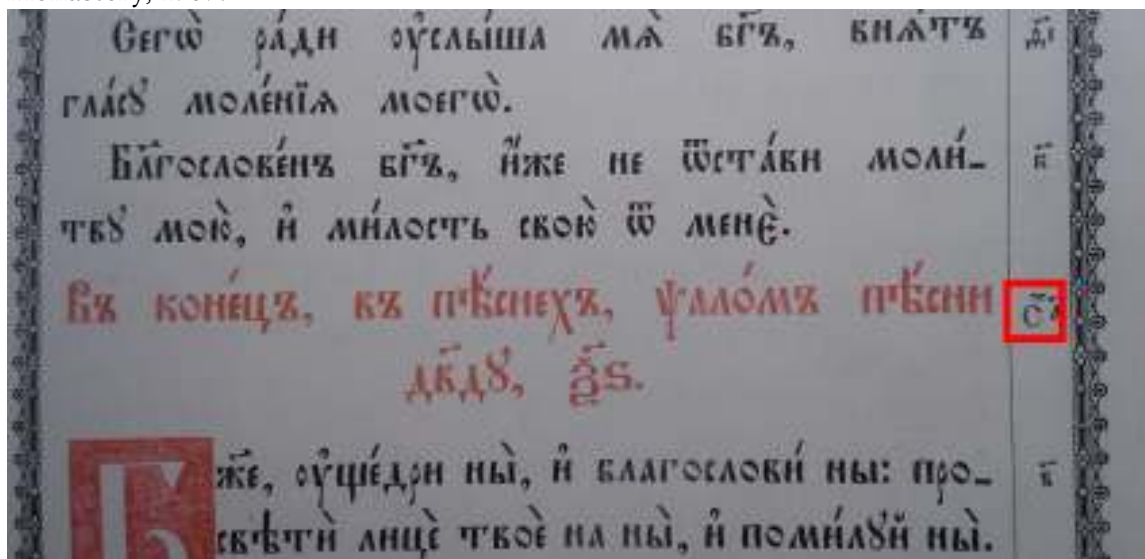 Сегѡ̀ ра́ди ᲂу҆слы́ша мѧ̀ бг҃ъ, внѧ́тъ
гла́сꙋ моле́нїѧ моегѡ̀.
Бл҃гослове́нъ бг҃ъ, и҆́же не ѿста́ви моли́_ к҃
твꙋ мою̀, и҆ ми́лость свою̀ ѿ менє̀.
Въ коне́цъ, въ пѣ́снехъ, ѱало́мъ пѣ́сни
дв҃дꙋ, ѯ҃ѕ.
Бж҃е, ᲂу҆ще́дри ны̀, и҆ благослови́ ны: про_ в҃
свѣтѝ лицѐ твоѐ на ны̀, и҆ поми́лꙋй ны̀.